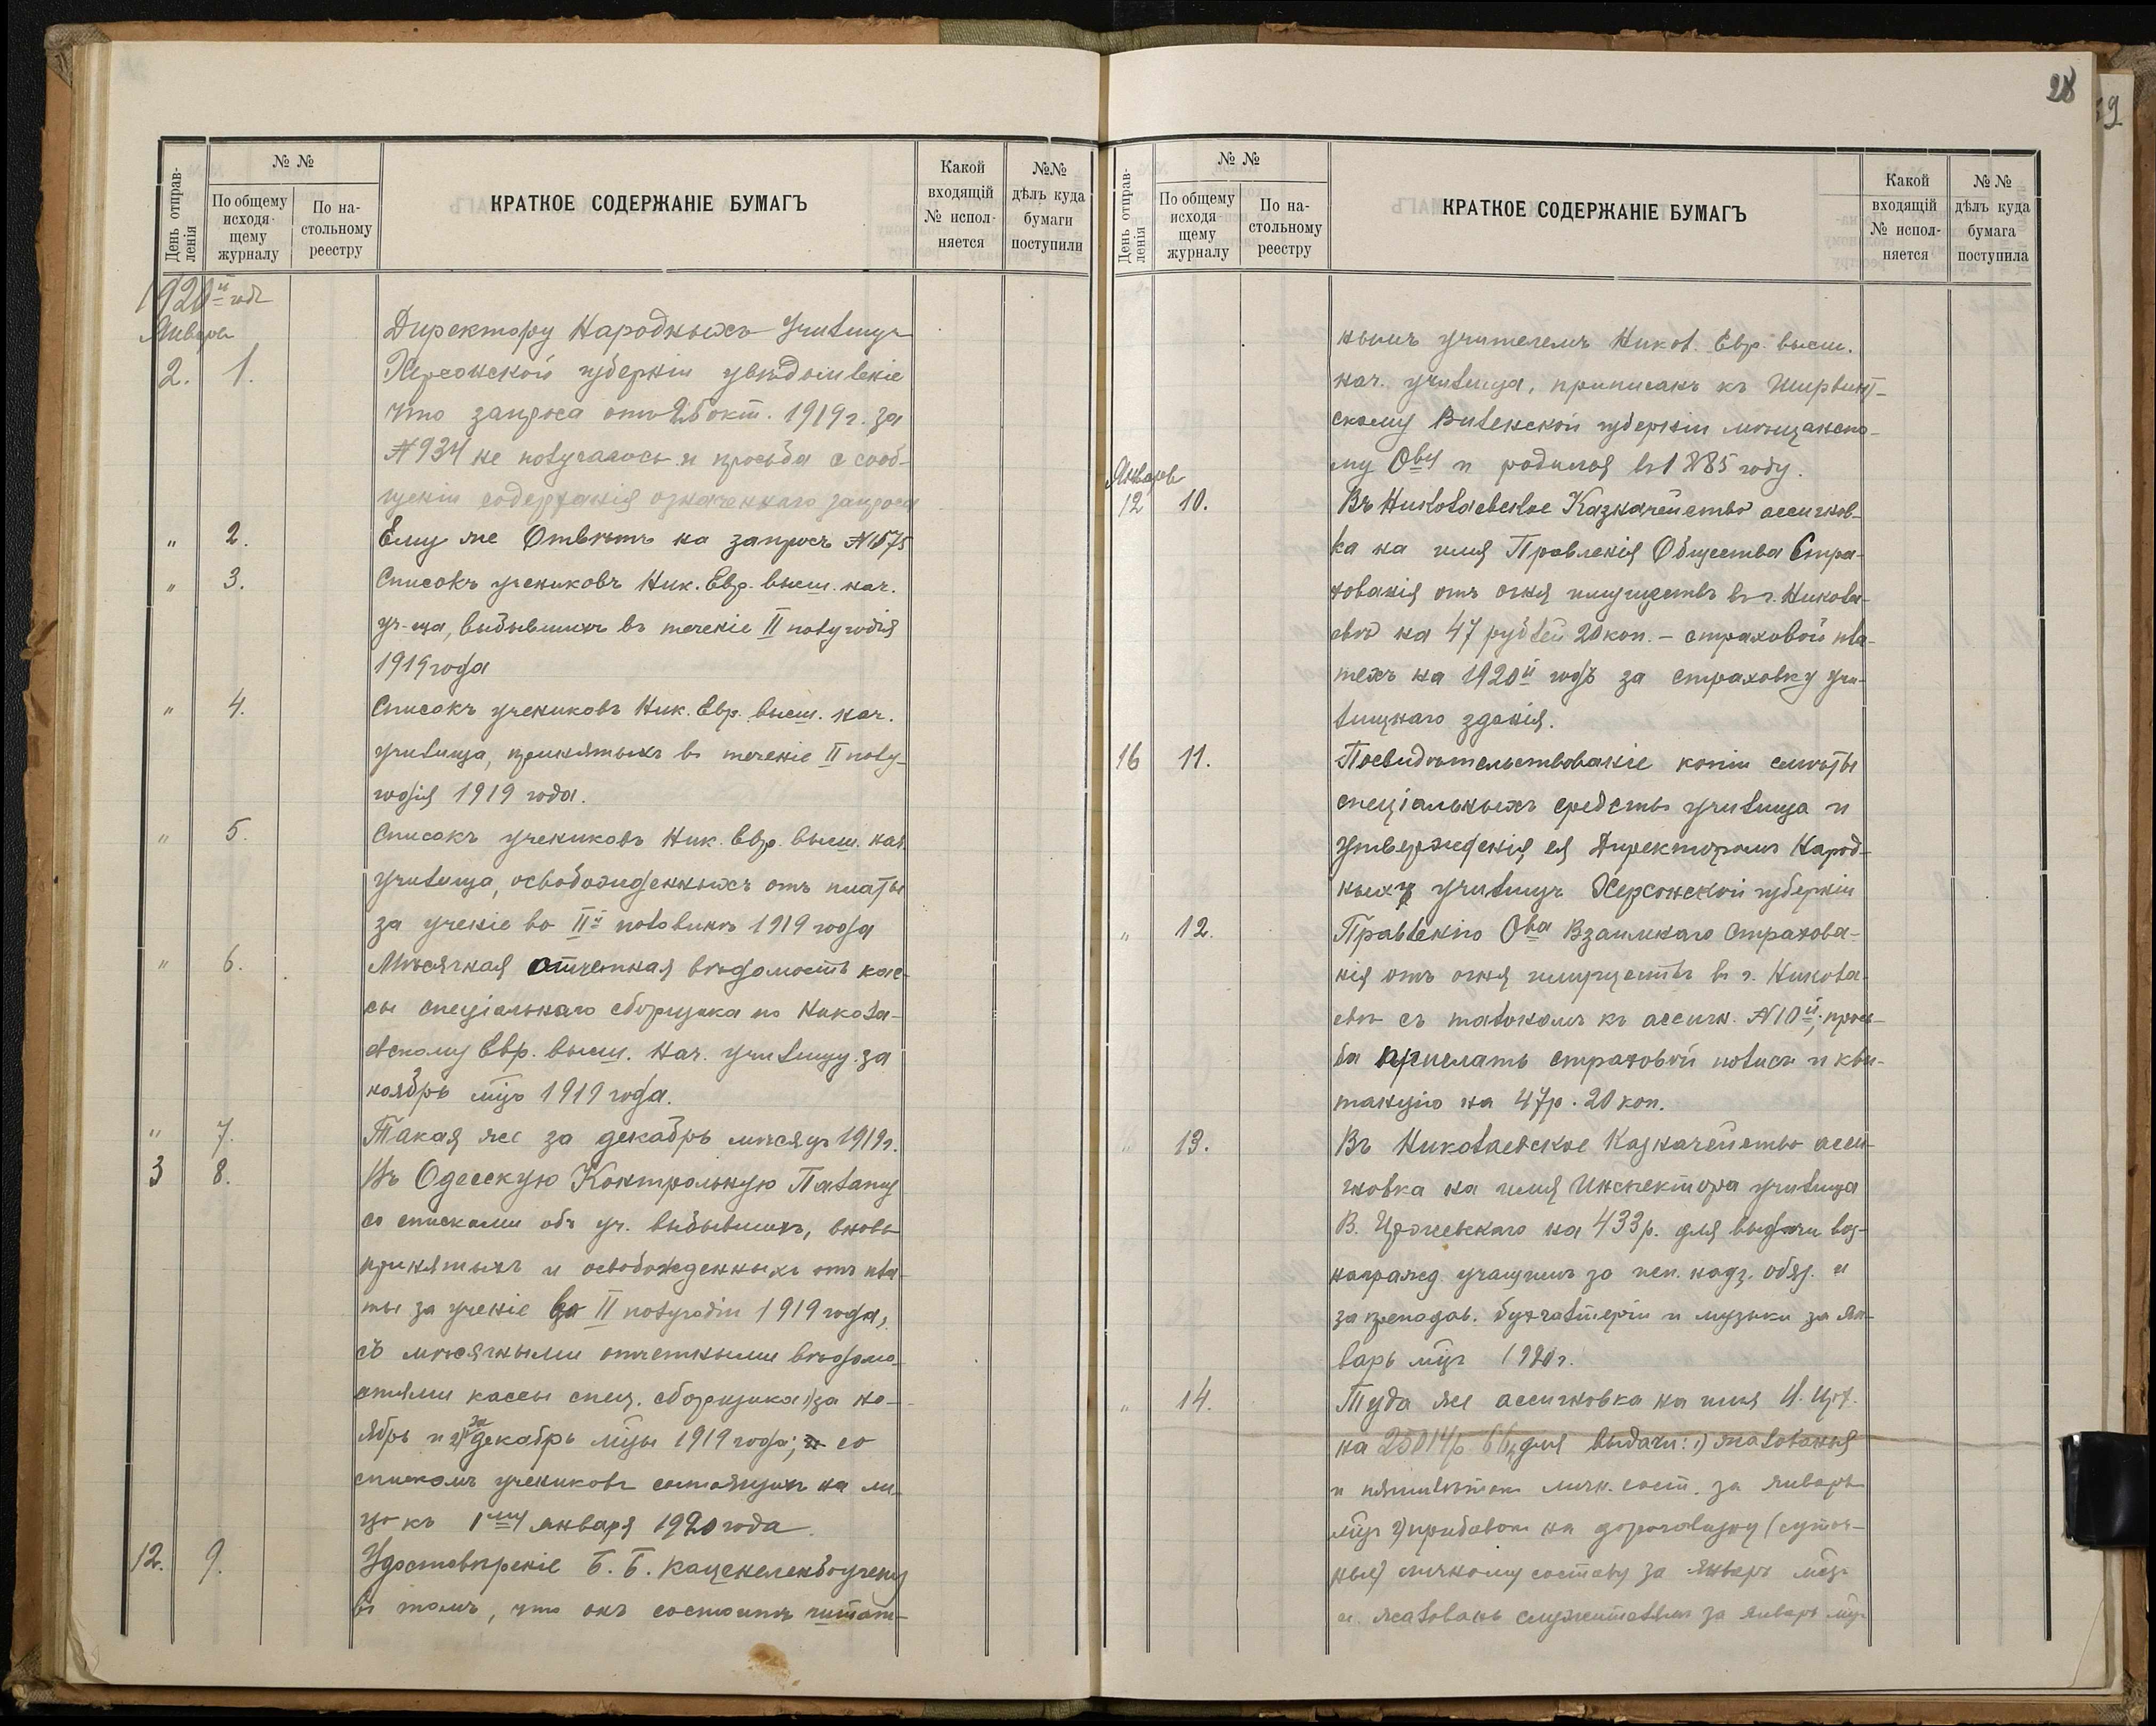 28
29
День отправленія
№ №
По общему исходящему журналу
По настольному реестру
КРАТКОЕ СОДЕРЖАНІЕ БУМАГЪ
Какой входящій № исполняется
№№ дѣлъ куда бумаги поступили
1920й годъ
Январь
Директору Народныхъ Училищъ
2. 1. Херсонской губерніи увѣдомленіе
что запроса отъ 25 окт. 1919 г. за
№ 934 не получалось и просьба о сооб-
щеніи содержанія означеннаго запроса
" 2. Ему же Отвѣтъ на запросъ № 1575
" 3. Списокъ учениковъ Ник. Евр. высш. нач.
уч-ща, выбывшихъ въ теченіе II полугодія
1919 года
" 4. Списокъ учениковъ Ник. Евр. высш. нач.
училища, принятыхъ въ теченіе II полу-
годія 1919 года.
" 5. Списокъ учениковъ Ник. Евр. высш. нач.
училища, освобожденныхъ отъ платы
за ученіе во IIй половинѣ 1919 года
" 6. Мѣсячная отчетная вѣдомость кас-
сы спеціальнаго сборщика по Никола-
евскому Евр. высш. нач. училищу за
ноябрь мцъ 1919 года.
" 7. Такая же за декабрь мѣсяцъ 1919 г.
3 8. Въ Одесскую Контрольную Палату
со списками объ уч. выбывшихъ, вновь
принятыхъ и освобожденныхъ отъ пла-
ты за ученіе во II полугодіи 1919 года,
съ мѣсячными отчетными вѣдомо-
стями кассы спец. сборщика 1) за но-
ябрь и 2) за декабрь мцы 1919 года; со
спискомъ учениковъ состоящихъ на ли-
цо къ 1му января 1920 года.
12. 9. Удостовѣреніе Б. Б.
въ томъ, что онъ состоитъ штат-
День отправленія
№ №
По общему исходящему журналу
По настольному реестру
КРАТКОЕ СОДЕРЖАНІЕ БУМАГЪ
Какой входящій № исполняется
№ № дѣлъ куда бумага поступила
нымъ учителемъ Никол. Евр. высш.
нач. училища, приписанъ къ Ширвинт-
скому Виленской губерніи мѣщанско-
му Обву и родился въ 1885 году.
Январь
12 10. Въ Николаевское Казначейство ассигнов-
ка на имя Правленія Общества Стра-
хованія отъ огня имуществъ въ г. Никола-
евѣ на 47 рублей 20 коп. – страховой пла-
тежъ на 1920й годъ за страховку учи-
лищнаго зданія.
16 11. Посвидѣтельствованіе копіи смѣты
спеціальныхъ средствъ училища и
утвержденія ея Директоромъ Народ-
ныхъ училищъ Херсонской губерніи
" 12. Правленію Ова Взаимнаго Страхова-
нія отъ огня имуществъ въ г. Никола-
евѣ съ талономъ къ ассигн. № 10й; прось-
ба прислать страховой полисъ и кви-
танцію на 47 р. 20 коп.
" 13. Въ Николаевское Казначейство асси-
гновка на имя Инспектора училища
В. на 433 р. для выдачи воз-
награжд. учащимъ за исп. надз. обяз. и
за преподав. бухгалтеріи и музыки за ян-
варь мцъ 1920 г.
" 14. Туда же ассигновка на имя
на 25014 р. 66 к. для выдачи: 1) жалованья
и пятилѣтокъ личн. сост. за январь
мцъ 2) прибавокъ на дороговизну (суточ-
ныя) личному составу за январь мцъ
и жалованья служителямъ за январь мцъ